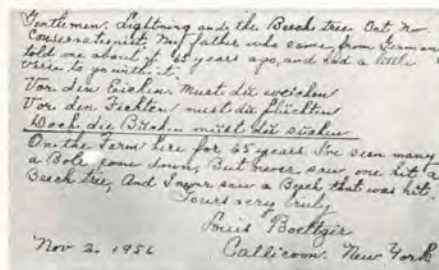 Gentlemen. Lightning and the Beech tree Oct. No
Conservationist. My father who came from German
told me about it 65 years ago, and had a little
verse to go with it.
Vor den Eichen. Must du weichen
Vor den Fichten must du flüchten
Doch die Büchen müst dü süchen
On the Farm here for 65 years I've seen many
a Bolt come down, But never saw one hit a
Beech tree, And I never saw a Beech that was hit.
Yours very truly
Louis Boettger
Nov 2. 1956 Callicoon. New York